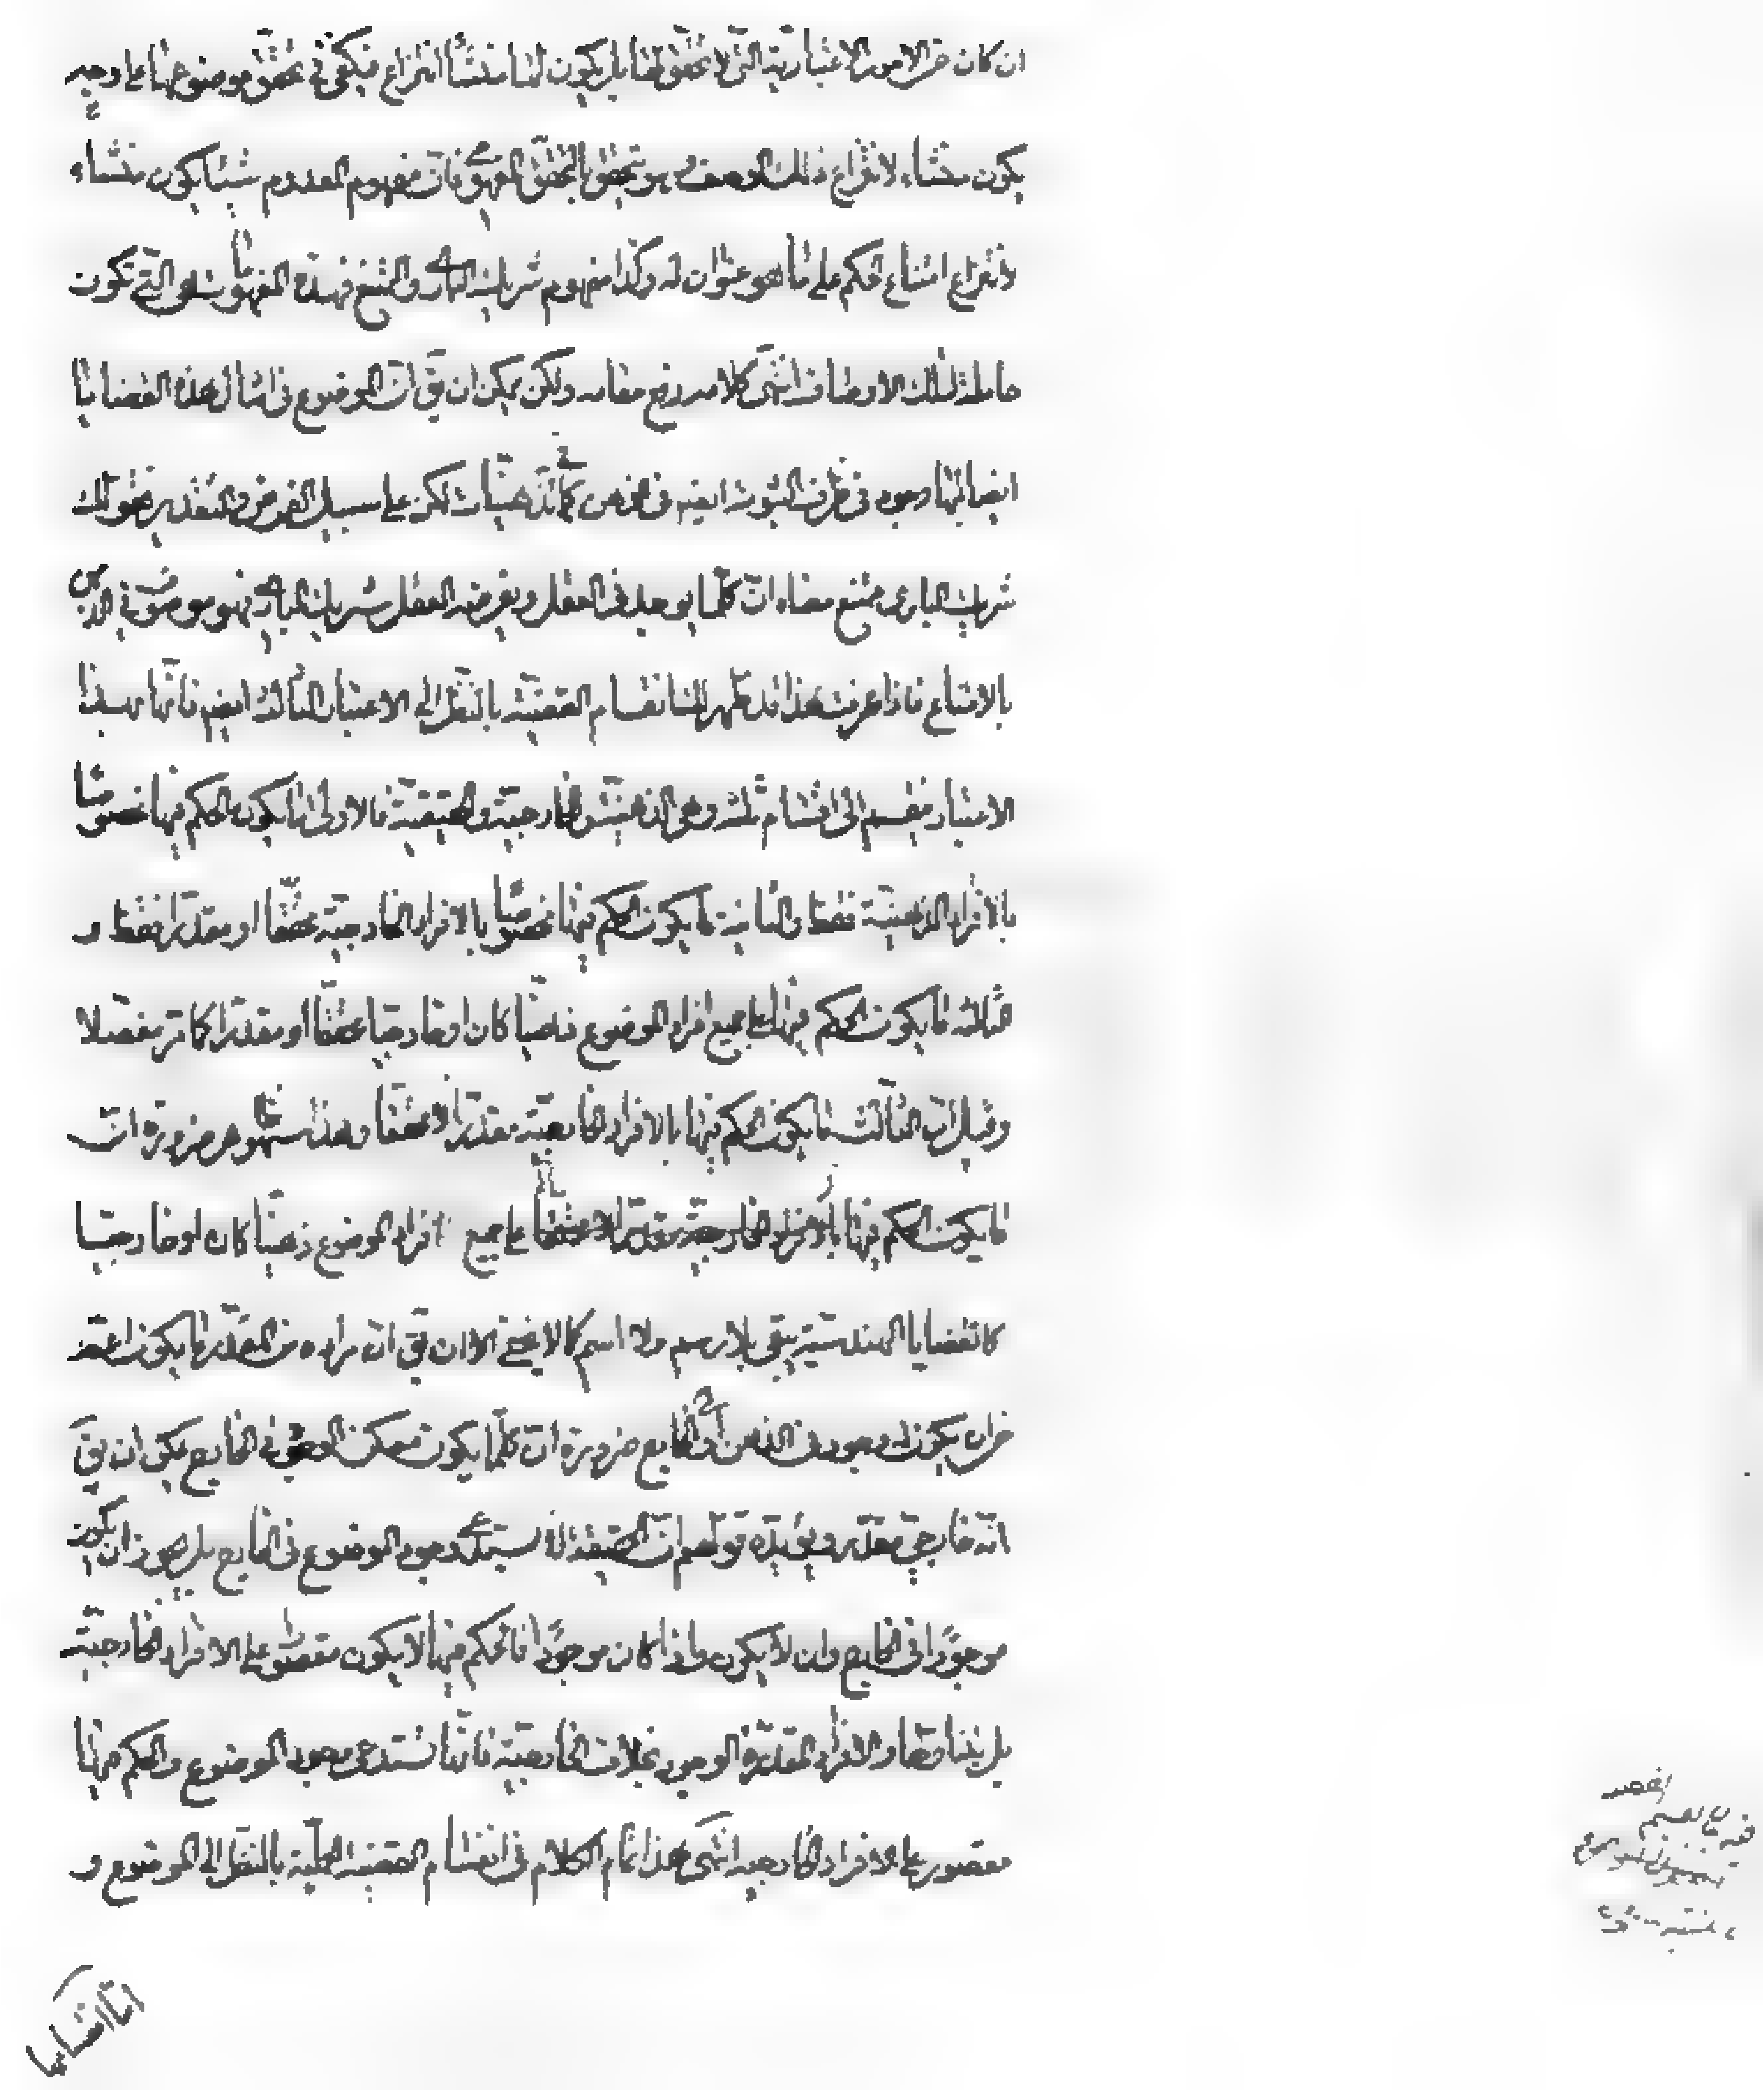 ان كان من الامور الاعتبارية التى لا تحقق لها بل يكون لها منشأ انتزاع فيكفى فى تحقق موضوعها على وجه
يكون منشاء لانتزاع ذلك الوصف هو تحقق المفهوم فان مفهوم المعدوم شيئا يكون منشاء
لانتزاع امتناع الحكم على ما هو عنوان له وكذا مفهوم شريك البارى والممتنع فهذه المفهومات هى التى تكون
حاملة لتلك الاوصاف انتهى كلامه رفع مقامه ولكن يمكن ان يق ان الموضوع فى امثال هذه القضايا
ايضا لها وجود فى ظرف الثبوت ايضا فى الذهن كالذهنيات لكن على سبيل الفرض والتقدير فقولك
شريك البارى ممتنع معناه ان كلما يوجد فى العقل ويفرضه العقل شريك البارى فهو موصوف فى الذهن
بالامتناع فاذا عرفت هذا قد ظهر لك انقسام القضية بالنظر الى الاعتبار الثالث ايضا فانها بهذا
الاعتبار منقسم الى اقسام ثلثة وهى الذهنية والخارجية والحقيقية فالاولى ما يكون الحكم فيها مخصوصا
بالافراد الذهنية فقط والثانية ما يكون الحكم فيها مخصوصا بالافراد الخارجية محققا او مقدرا فقط و
الثالثة ما يكون الحكم فيها على جميع افراد الموضوع ذهنيا كان او خارجيا محققا او مقدرا كما مر مفصلا
وقيل ان الثالث ما يكون الحكم فيها بالافراد الخارجية مقدرا لا محققا وهذا سهو ضرورة ان
ما يكون الحكم فيها على جميع افراد الموضوع ذهنيا كان او خارجيا
كالقضايا الهندسية يبقى بلا رسم ولا اسم كما لا يخفى الا ان يق ان مراده من المقدر ما يكون اعم
من ان يكون له وجود فى الذهن او الخارج ضرورة ان كلما يكون ممكن الوجود فى الخارج يمكن ان يق
انه خارجى مقدر ويؤيده قولهم ان الحقيقة لا يستدعى وجود الموضوع فى الخارج بل يجوز ان يكون
موجودا فى الخارج وان لا يكون واذا كان موجودا فالحكم فيها لا يكون مقصورا على الافراد الخارجية
بل يتناولها والافراد المقدرة الوجود بخلاف الخارجية فانها تستدعى وجود الموضوع والحكم فيها
مقصور على الافراد الخارجية انتهى هذا تمام الكلام فى انقسام القضية الحملية بالنظر الى الموضوع و
اما اقسامها